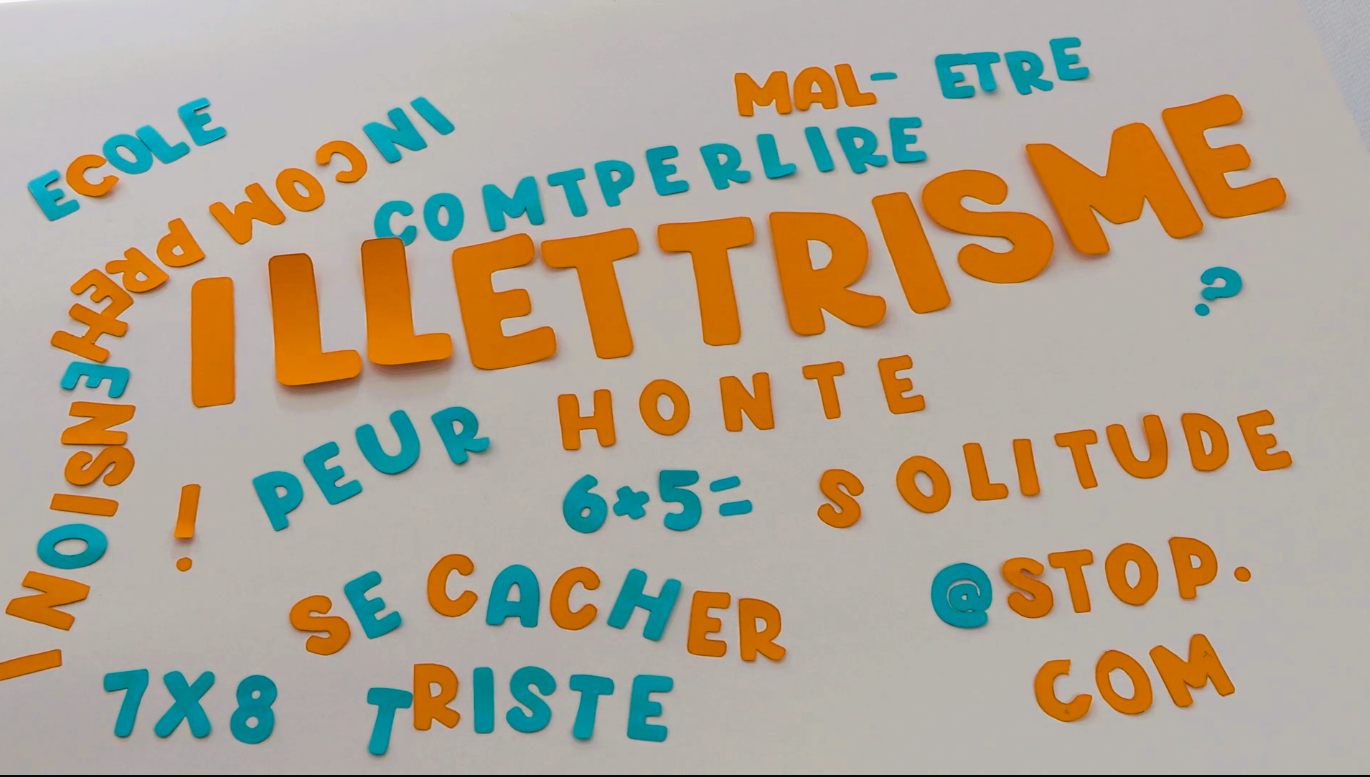 MAL-ETRE
ECOLE
IN COM PREHENSION I
COMTPERLIRE
ILLETTRISME
?
HONTE
PEUR
!
6+5=
SOLITUDE
SE CACHER
@STOP.
COM
7X8
TRISTE